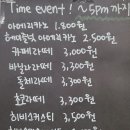 Time event! ~5pm까지
아메리카노 1,800원
헤이즐넛 아메리카노 2,500원
카페라떼 3,000원
바닐라라떼 3,300원
돌체라떼 3,300원
초코라떼 3,300원
히비스커스티 3,500원